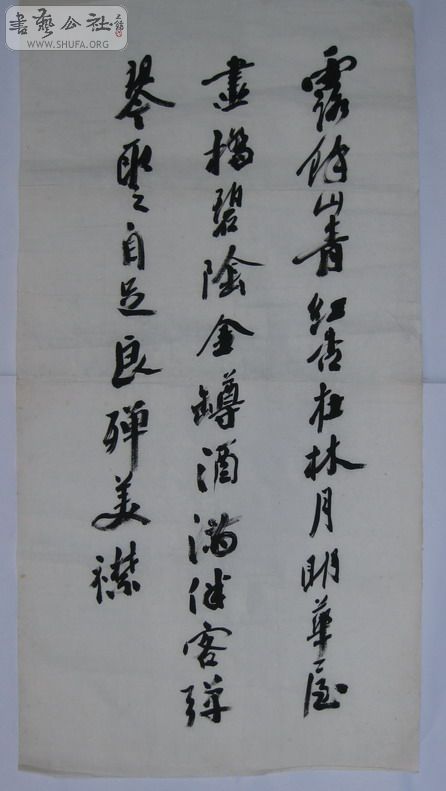 書藝公社
WWW.SHUFA.ORG
露餘山青紅杏在林月明華屋
畫橋碧陰金罇酒滿伴客彈
琴取之自足良殫美襟